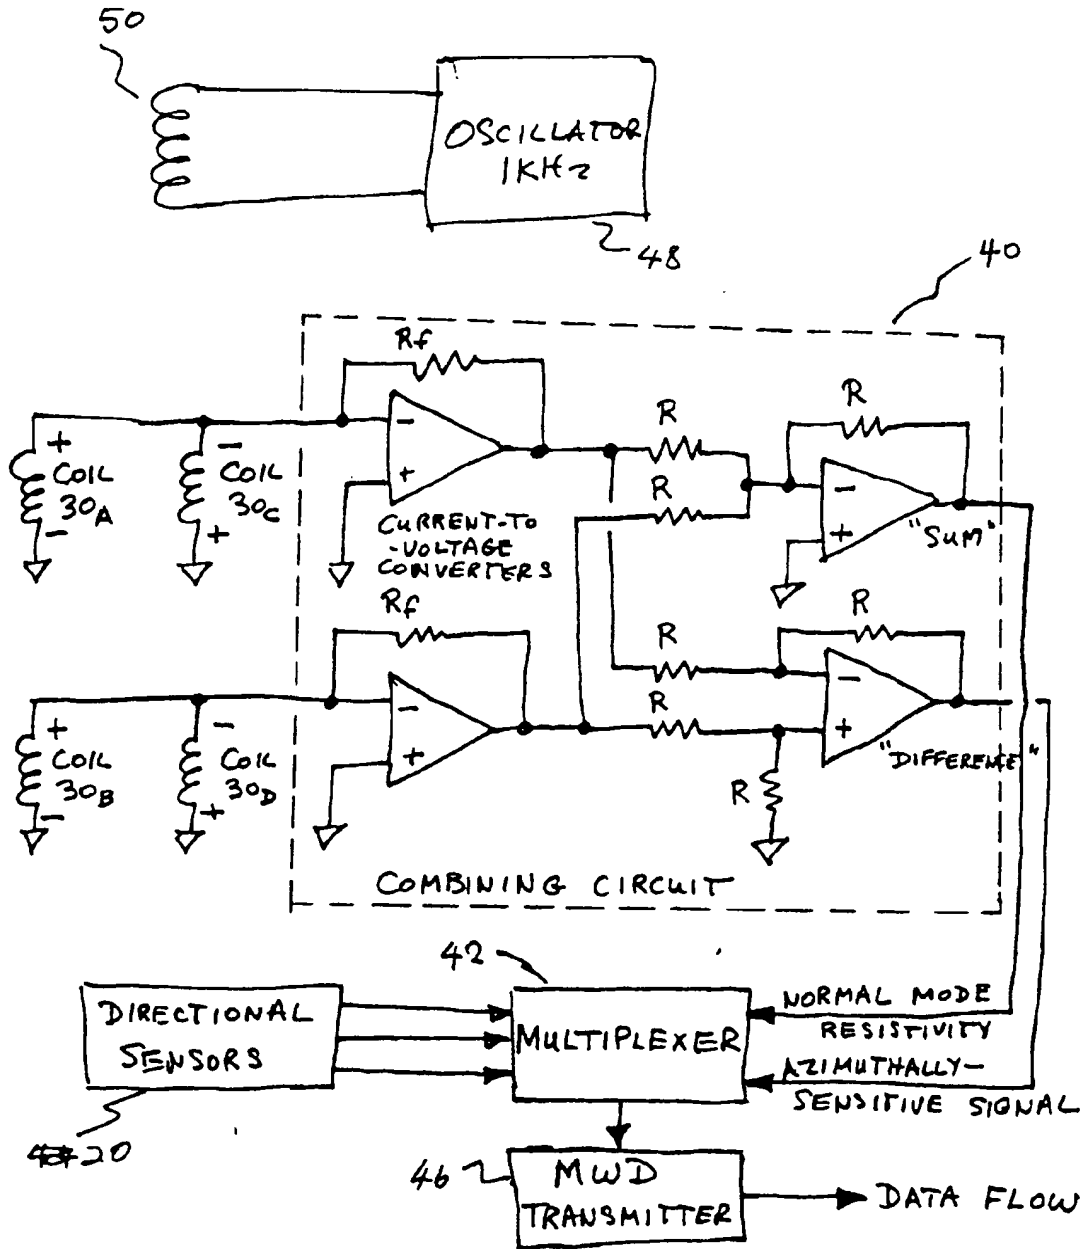 50
OSCILLATOR
1KHz
48
40
Rf
R
R
+
-
COIL
30A
-
-
COIL
30C
+
-
+
R
-
+
"SUM"
CURRENT-TO
-VOLTAGE
CONVERTERS
Rf
R
R
+
COIL
30B
-
-
COIL
30D
+
-
+
R
-
+
"DIFFERENCE"
R
COMBINING CIRCUIT
42
DIRECTIONAL
SENSORS
MULTIPLEXER
NORMAL MODE
RESISTIVITY
AZIMUTHALLY-
SENSITIVE SIGNAL
20
46
MWD
TRANSMITTER
DATA FLOW